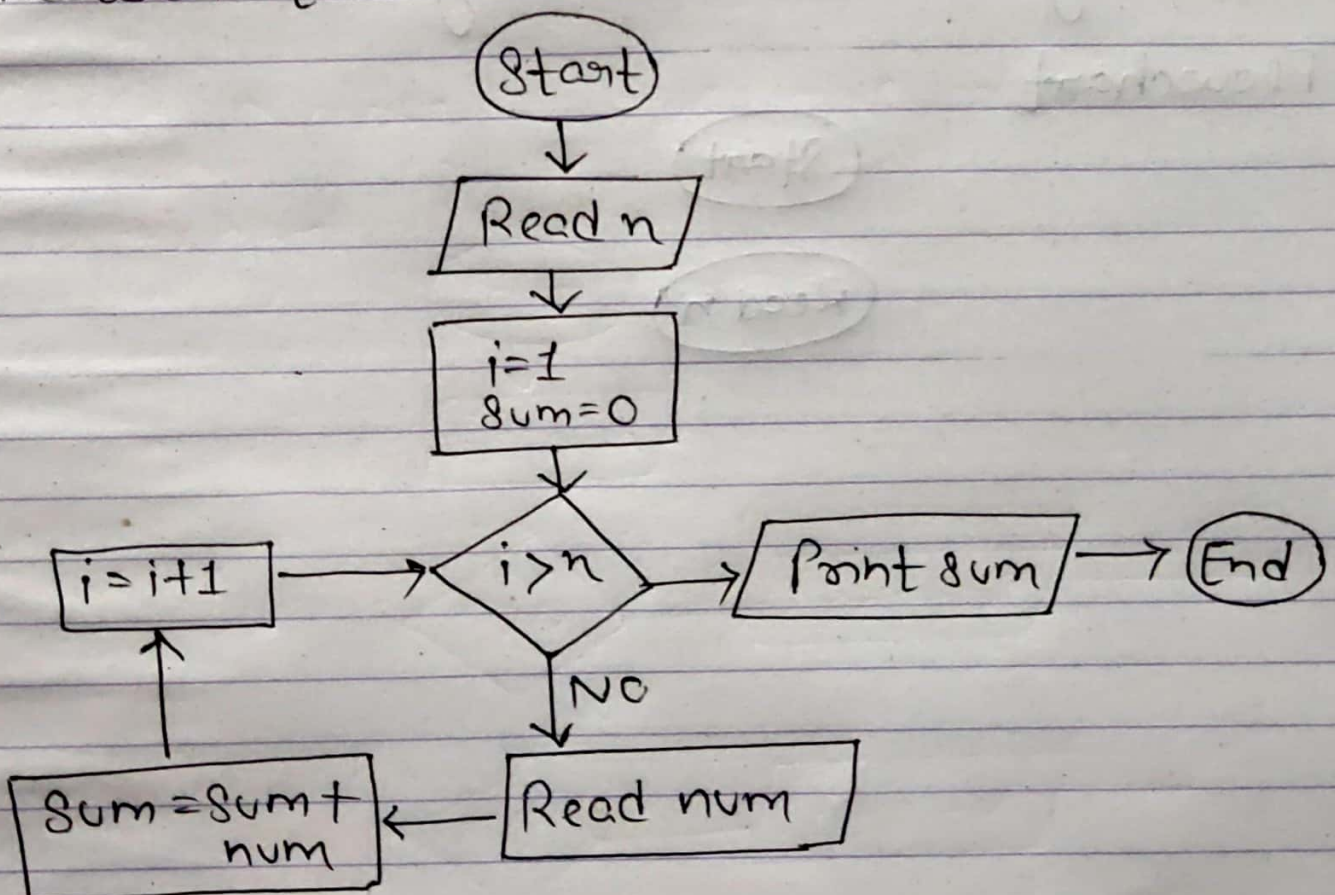 Start
Read n
i=1
Sum=0
i>n
Print sum
End
NO
Read num
Sum=Sum+
num
i=i+1